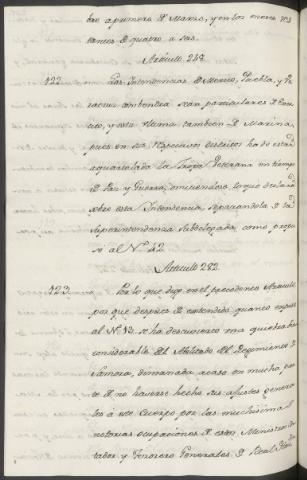 dro a pimero de Marzo, y en los onores res
tantes de quatro a seis.
Articulo 257.
122. Las Intendencias de Mexico, Puebla, y Ve
racruz tambien seran particulares de Exer
cito, y esta ultima tambien de Marina
pues en sus respectivos distritos ha de estar
aquartelada la Tropa Veterana en tiempo
de Paz y Guerra, omitiendose lo que declara
sobre esta Intendencia separandola de la
Superintendencia Subdelegada, como propu
se al Nº 42.
Articulo 282.
123. Por lo que dije en el precedente Articulo
por que despues de extendido quanto expuse
al Nº 13. se ha descubierto una quiebra
considerable del Avilitado del Regimiento de
Zamora, dimanada acaso en mucha par
te de no haverse hecho sus ajustes genera
les a este Cuerpo por las muchisimas
notorias ocupaciones de estos Ministros Con
tador y Tesorero Generales de Real